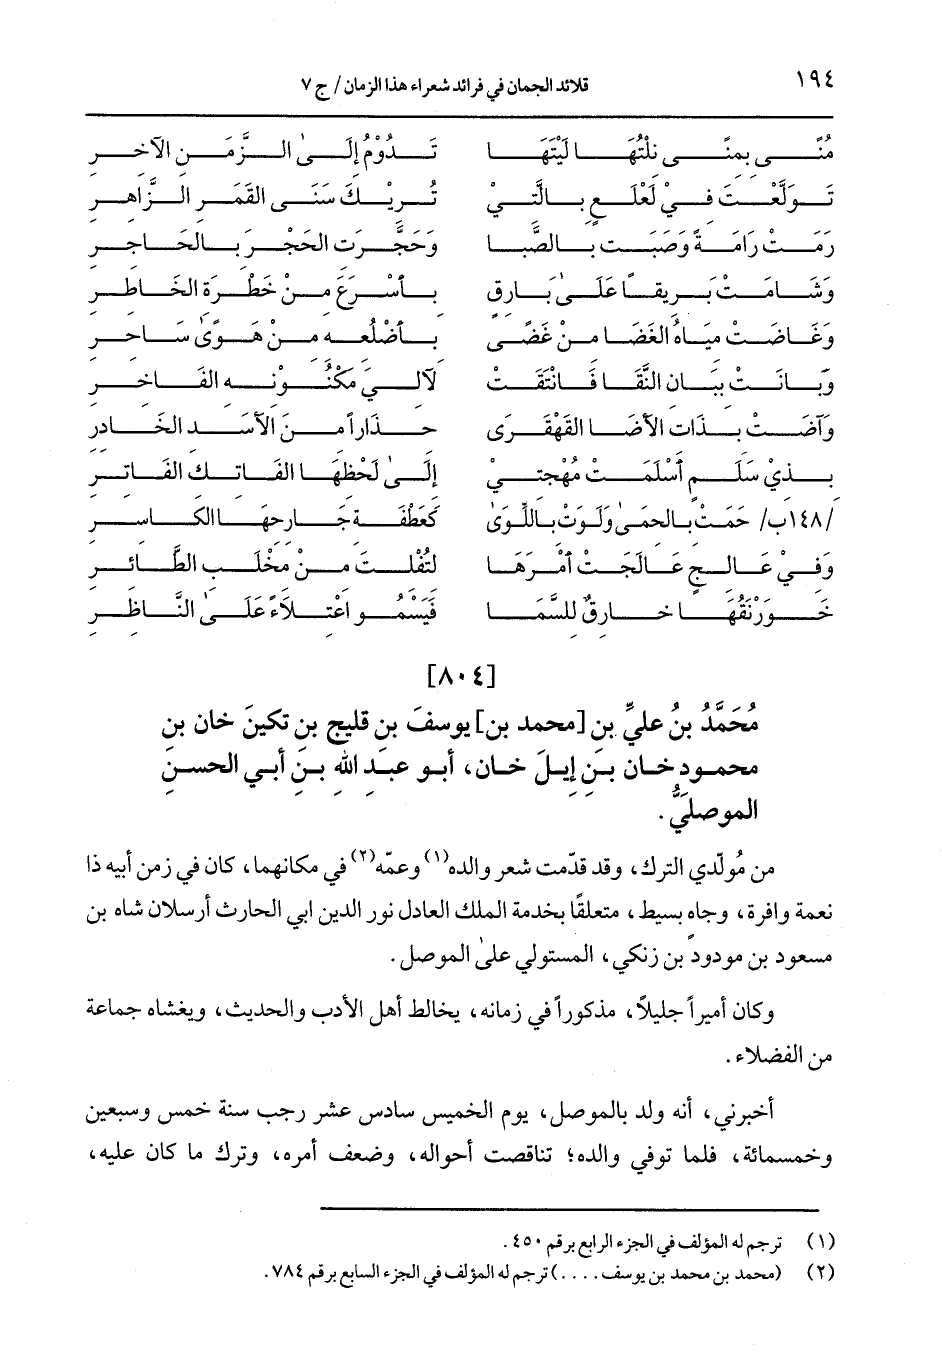 ١٩٤
قلائد الجمان في فرائد شعراء هذا الزمان / ج ٧
مُنًى بمنًى نلْتُهَا لَيْتَهَا تَدُوْمُ إلَىٰ الزَّمَنِ الآخرِ
تَوَلَّعْتَ فيْ لَعْلَعٍ بالَّتيْ تُرِيْكَ سَنَى القَمَرِ الزَّاهرِ
رَمَتْ رَامَةً وَصَبَتْ بالصَّبَا وَحَجَّرَتِ الحَجْرَ بالحَاجرِ
وَشَامَتْ بَرِيقاً عَلَىٰ بَارِقٍ بأسْرَعَ منْ خَطْرَةِ الخَاطرِ
وَغَاضَتْ ميَاهُ الغَضَا منْ غَضًى بأضْلُعه منْ هَوىً سَاحرِ
وَبَانَتْ ببَانِ النَّقَا فَانْتَقَتْ لآلِيَ مَكْنُوْنه الفَاخرِ
وَآضَتْ بذَاتِ الأضَا القَهْقَرَى حذَاراً منَ الأسَدِ الخَادرِ
بذيْ سَلَمٍ أسْلَمَتْ مُهْجتيْ إلَىٰ لَحْظهَا الفَاتكِ الفَاترِ
/١٤٨ب/ حَمَتْ بالحمَىٰ وَلَوَتْ باللِّوَىٰ كَعَطْفَةِ جَارحهَا الكَاسرِ
وَفيْ عَالجٍ عَالَجَتْ أمْرَهَا لتُفْلتَ منْ مخْلَبِ الطَّائرِ
خَوَرْنَقُهَا خارقٌ للسَّمَا فَيَسْمُو اعْتلَاءً عَلَىٰ النَّاظرِ
[٨٠٤]
مُحَمَّدُ بنُ عليِّ بنِ [محمد بن] يوسفَ بنِ قليجِ بنِ تكينَ خان بنِ
محمود خان بنِ إيلَ خان، أبو عبد اللهِ بنِ أبي الحسنِ
الموصليُّ.
من مُولّدي الترك، وقد قدّمت شعر والده(١) وعمّه(٢) في مكانهما، كان في زمن أبيه ذا
نعمة وافرة، وجاه بسيط، متعلقًا بخدمة الملك العادل نور الدين ابي الحارث أرسلان شاه بن
مسعود بن مودود بن زنكي، المستولي علىٰ الموصل.
وكان أميراً جليلاً، مذكوراً في زمانه، يخالط أهل الأدب والحديث، ويغشاه جماعة
من الفضلاء.
أخبرني، أنه ولد بالموصل، يوم الخميس سادس عشر رجب سنة خمس وسبعين
وخمسمائة، فلما توفي والده؛ تناقصت أحواله، وضعف أمره، وترك ما كان عليه،
(١) ترجم له المؤلف في الجزء الرابع برقم ٤٥٠.
(٢) (محمد بن محمد بن يوسف....) ترجم له المؤلف في الجزء السابع برقم ٧٨٤.